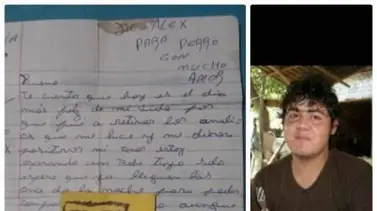 DE: ALEX
PARA PERRO
CON
MUCHO
AMOR
Bueno
Te cuento que hoy es el dia
más feliz de mi vida por
que fui a retirar los analis
is que me hice y me dieron
positivos mi amor estoy
esperando un bebe tuyo solo
espero que ya lleguen las
de la noche para poder
aunque